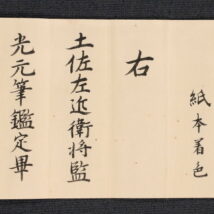 紙本着色
右
土佐左近衛将監
光元筆鑑定畢